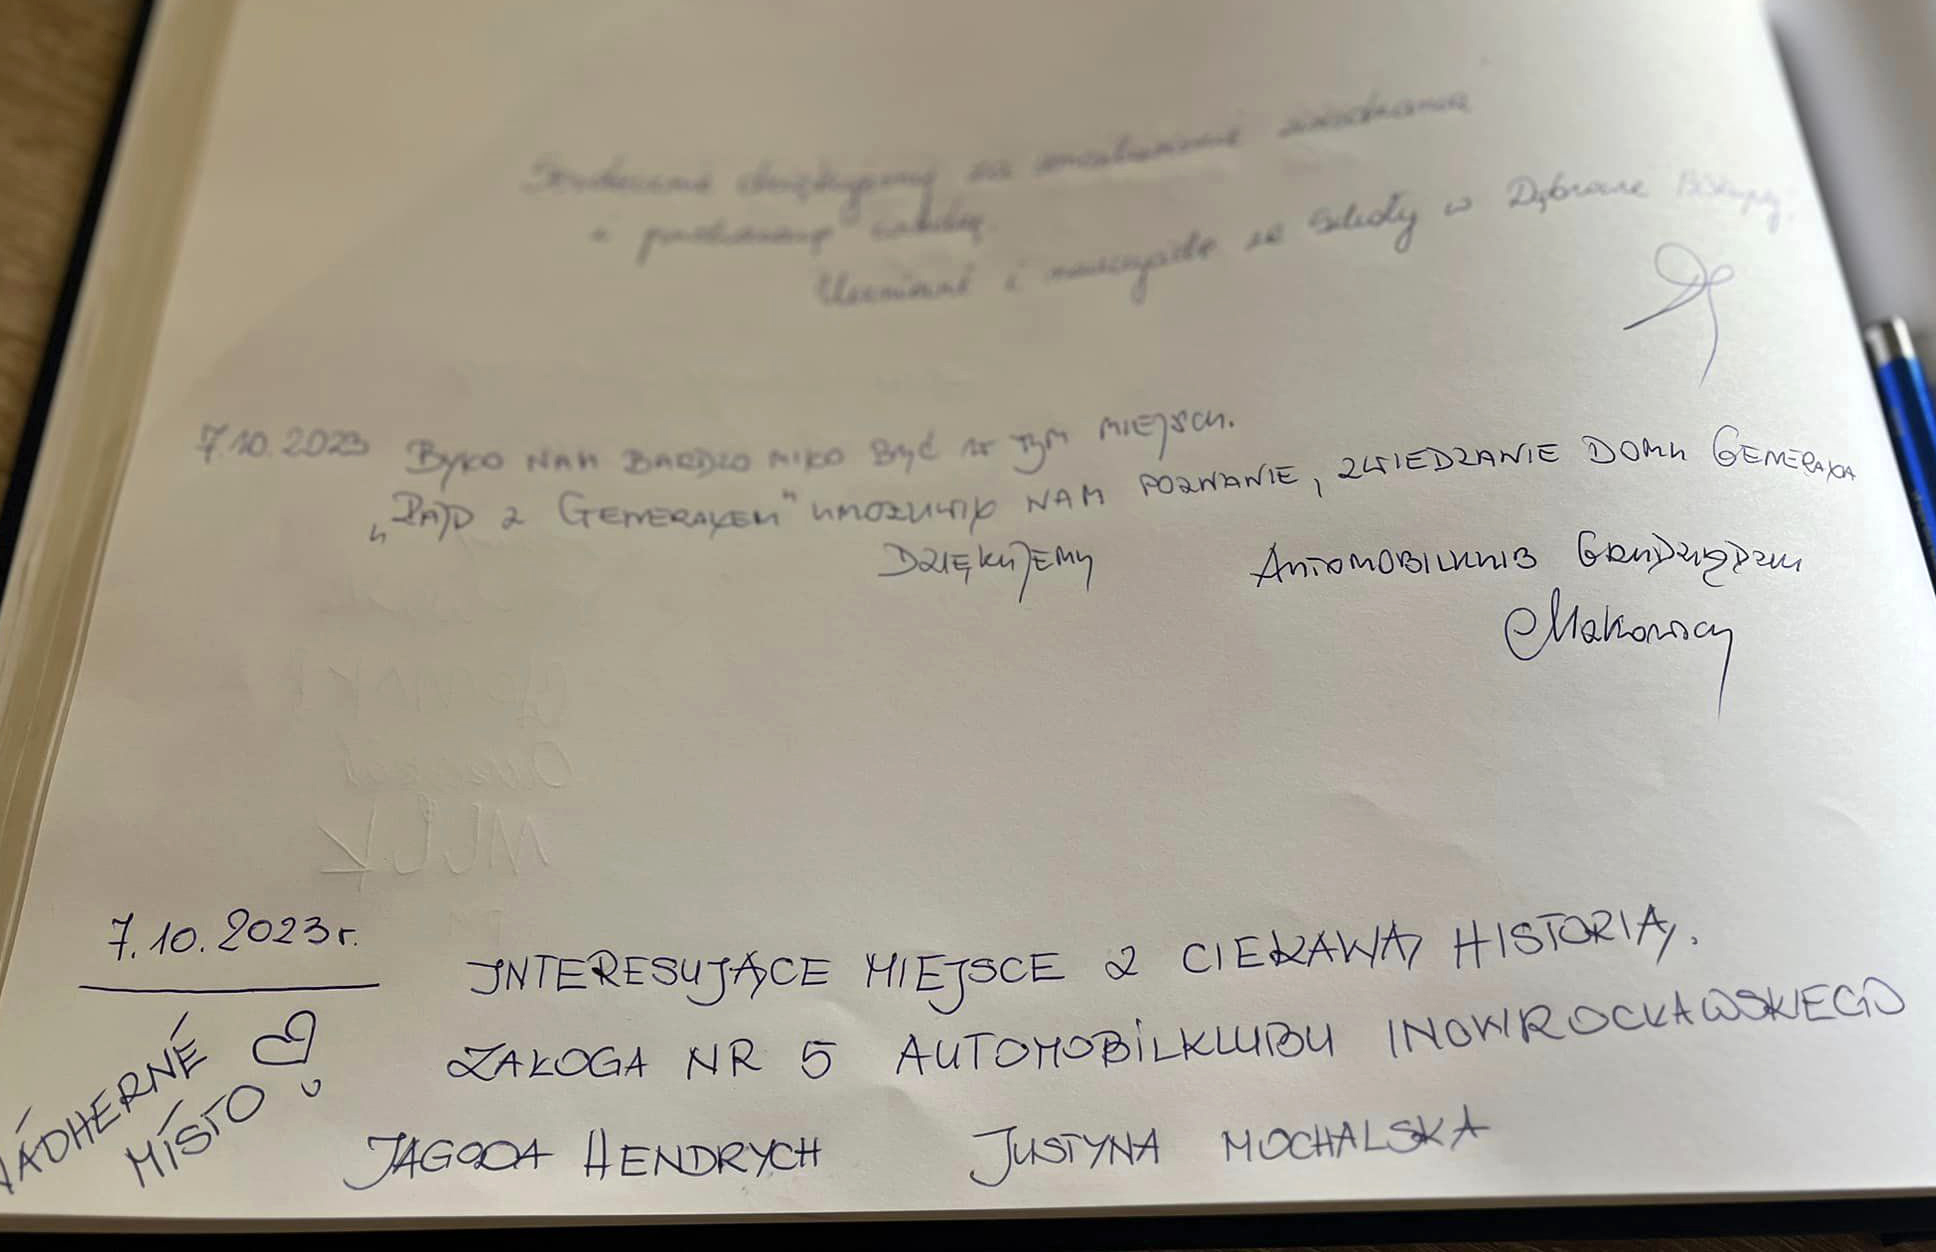 Serdecznie dziękujemy za umożliwienie zwiedzania
i
Uczniowie i nauczyciele ze Szkoły w Dąbrowie Biskupiej
7.10.2023 BYŁO NAM BARDZO MIŁO BYĆ W TYM MIEJSCU.
„RAJD Z GENERAŁEM" UMOŻLIWIŁ NAM POZNANIE, ZWIEDZANIE DOMU GENERAŁA
DZIĘKUJEMY AUTOMOBILKLUB GRUDZIĄDZKI
Makowscy
7.10.2023r.
INTERESUJĄCE MIEJSCE Z CIEKAWĄ HISTORIĄ.
ZAŁOGA NR 5 AUTOMOBILKLUBU INOWROCŁAWSKIEGO
JAGODA HENDRYCH JUSTYNA MOCHALSKA
NÁDHERNÉ
MÍSTO